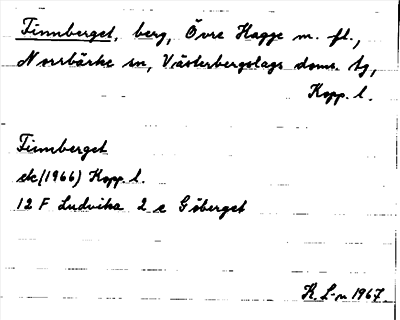 Finnberget, berg, Övre Hagge m. fl.,
Norrbärke sn, Västerbergslags doms. tg,
Kopp. l.
Finnberget
ek (1966) Kopp. l.
12 F Ludvika 2 e Gåberget
K. L-n 1967.